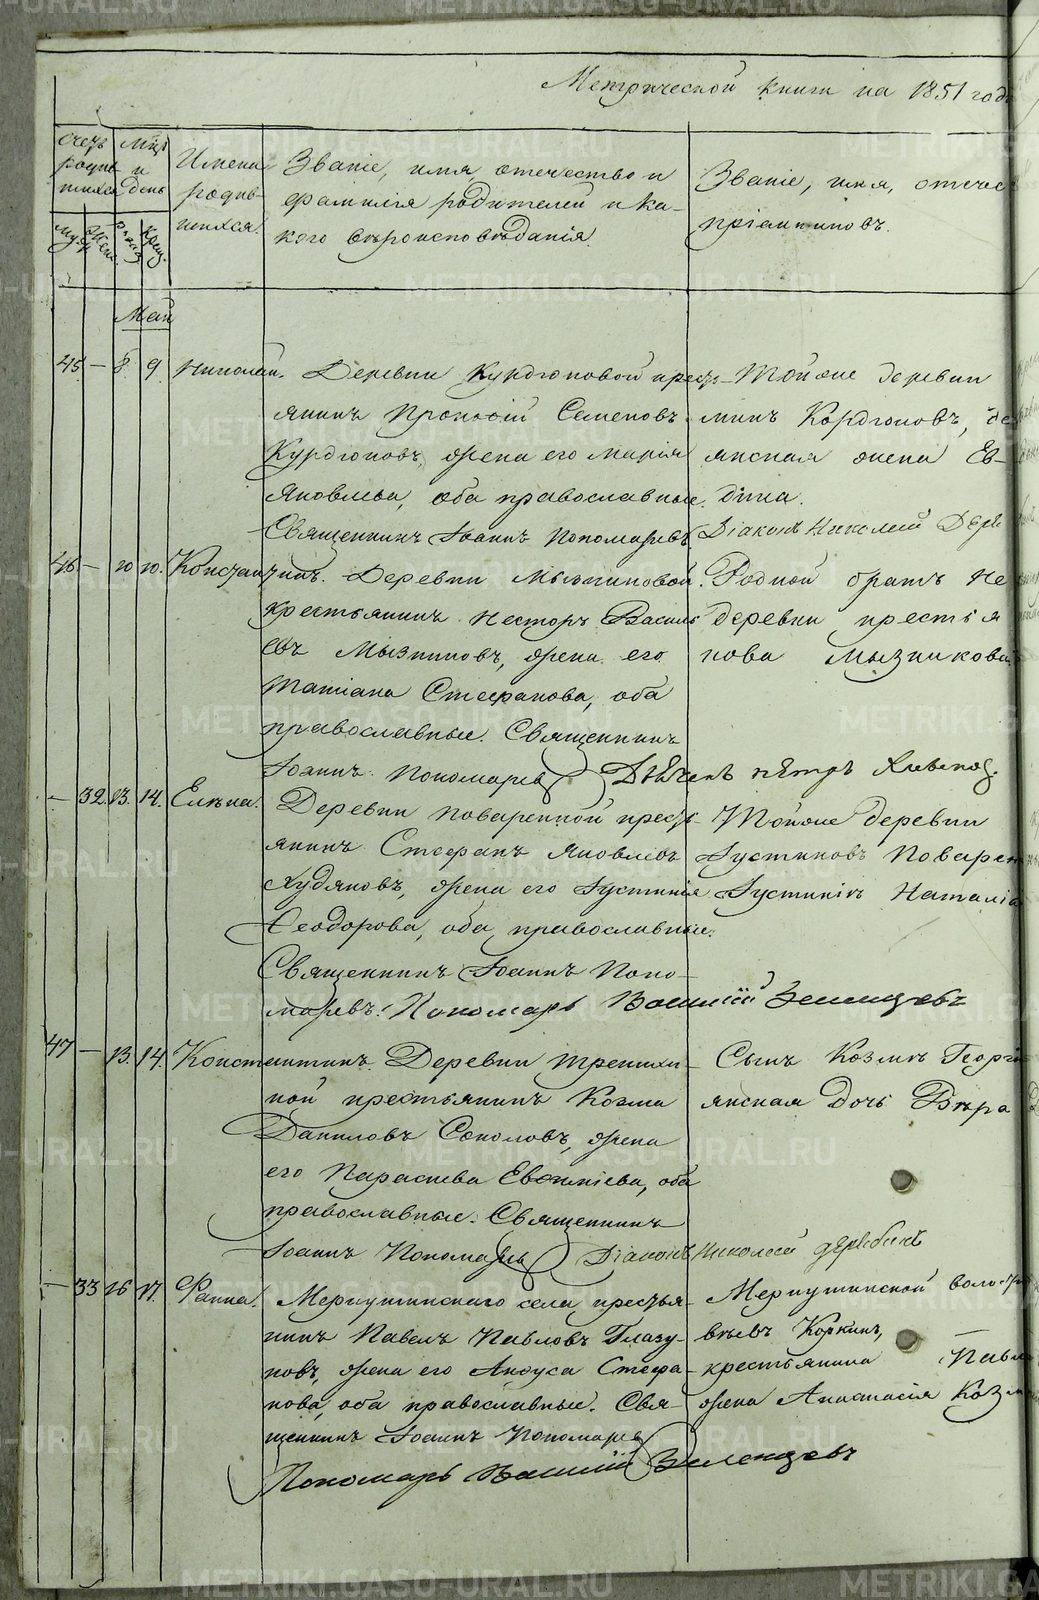 Метрической книги на 1851 годъ
Счетъ родившихся
Мцъ и день
Имена родившихся.
Званіе, имя, отечество и фамилія родителей и какого вѣроисповѣданія.
Званіе, имя, отечес
пріемниковъ.
Май
45 — 8 9 Николай. Деревни Курдюковой крестьянинъ
Семеновъ
Курдюковъ, жена его Марія
Яковлева, оба православные.
Священникъ Іоаннъ Пономаревъ
Тойже деревни
минъ Кордюковъ,
янская жена Ев-
Діаконъ Николай
46 — 10 10. Константинъ. Деревни Мызниковой
крестьянинъ Несторъ Василь
евъ Мызниковъ, жена его
Татіана Стефанова, оба
православные. Священникъ
Іоаннъ Пономаревъ
Родной братъ Не
деревни крестья
нова Мызникова
— 32 13. 14. Елена. Деревни Поваренной кресть-
янинъ Стефанъ Яковлевъ
Худяковъ, жена его Іустинія
Ѳеодорова, оба православные.
Священникъ Іоаннъ Поно-
маревъ. Пономарь Василій Зеленцевъ
Тойже деревни
Іустиновъ Поварен
Наталія
47 — 13. 14. Константинъ. Деревни
ной крестьянинъ Козма
Даниловъ Соколовъ, жена
его Параскева Евѳиміева, оба
православные. Священникъ
Іоаннъ Пономаревъ Діаконъ Николай Дерябинъ
Сынъ Козмы Георгі
янская дочь Вѣра
— 33 16 17. Фаина. Меркушинскаго села крестья-
нинъ Павелъ Павловъ Глазу-
новъ, жена его Анѳуса Стефа-
нова, оба православные. Свя-
щенникъ Іоаннъ Пономаревъ
Пономарь Василій Зеленцевъ
Меркушинской воло
Коркинъ,
крестьянина Павла
жена Анастасія Козм
METRIKI.GASO-URAL.RU